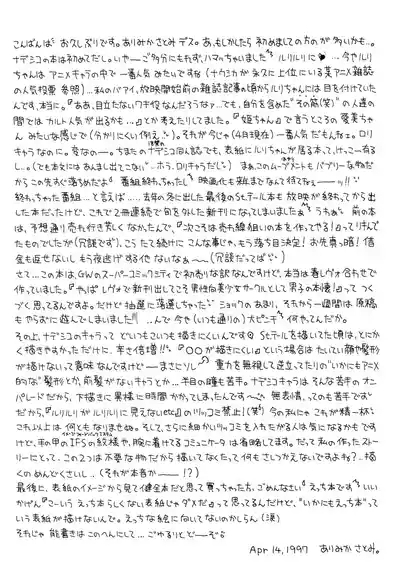 こんばんは お久しぶりです。ありみかさとみ デス。あ、もしかしたら 初めましての方の が多いかも…。
ナデシコの本は初めてだし。いやーご多分にもれず、ハマッちゃいました ルリルリに …今やルリ
ちゃんは アニメキャラの中で 一番人気みたいですね(ナウシカが永久に上位にいる某アニメ雑誌
の人気投票 参照)…私のバアイ、放映開始前の雑誌記事の頃からルリちゃんには目を付けていた
んです、本当に。『ああ、目立たないワキ役なんだろうなァ…でも、自分を含めた"その筋(笑)"の人達の
間では カルト人気が出るかも…』とか考えたりしてました。『姫ちゃん』で言うところの愛美ちゃ
ん みたいな感じで(分かりにくい例え)。それが今じゃ(4月現在)一番人気だもんねェ。ロリ
キャラなのに。変なのー。ちまたの ナデシコ同人誌でも、表紙にルリちゃんが居る本って、けっこー有る
し…。(でも本文にはあんまし出てこない…ホラ、ロリキャラだし)まぁこのムーブメントもバブリーな物だ
からこの先すぐ落ちめだよ 番組終わっちゃったし 映画化も来年までなんて待てねぇーッ!!
終わっちゃった番組…と言えば…‥去年の冬に出した最後のSt.テール本も 放映が終わってから出
した本だったけど、これで2冊連続で旬を外した新刊になってしまいましたぁ うちぁ〜 前の本
は、予想通り売れ行き苦しくなかったんで、『次こそは売れ線狙いの本を作ってやる!』って行んで
たものでしたが(冗談です)。こうたて続けに こんな事じゃ、もう落ち目決定!お先真っ暗!借
金も返せないし もう夜逃げする他ないなぁ〜(冗談だってば)
さて…この本は、GWのスーパーコミックシティで初売りな訳なんですけど、本当は春レヴォ合わせで
作っていました。『やっぱ レヴォで新刊出してこそ男性向美少女サークルとして男子の本懐!』ってつく
づく思ってるんですよ。だけど抽選に落選しちゃった ショックのあまり、それから一週間は原稿
もやらずに遊んでしまいました!! …んで今や(いつも通りの)大ピンチ 何やってんだか。
その上、ナデシコキャラって どいもこいつも描きにくいんですヨ St.テールを描いてた頃は、とにか
く描きやすかっただけに、辛さ倍増!!『○○が描きにくい』という場合はたいてい顔や髪形
が描けないって意味なんですけどーまさにソレ 重力を無視して逆立ってたりの"いかにもアニメ
的な"髪形とか、前髪がないキャラとか…平目の瞳も苦手。ナデシコキャラは そんな苦手のオン
パレードだから、下描きに異様に時間かかってしまったんです〜 無表情、ってのも苦手です
だから、『ルリルリがルリルリに見えないetc』のツッコミ禁止!(笑)今の私にゃ これが精一杯
これ以上は 何ともなりませぬ。そして、さらに細かいツッコミを入れたがる人は気になるかもです
けど、手の甲のIFSの紋様や、腕に着けてるコミュニケータは省略してます。だって私の作ったスト
ーリーにとって、この2つは不要な物だから描いてなくたって、何もさしつかえないんですよね?…描
くのめんどくさいし…(それが本音かーー!?)
最後に、表紙のイメージから見て健全本だと思って買っちゃった方、ごめんなさい えっち本です いい
かげん『こーいう えっち本らしくない表紙じゃダメだ』って思ってるんだけど、"いかにもえっち本"って
いう表紙が描けないんで。えっちな絵に向いてないのかしらん(涙)
それじゃ 能書きはこのへんにして… ごゆるりとどーぞ
Apr 14, 1997 ありみか さとみ。